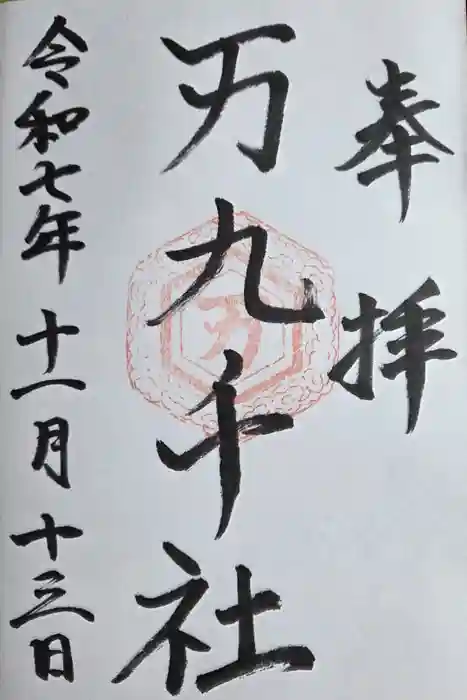 奉拝
万九千社
令和七年十一月十三日
万